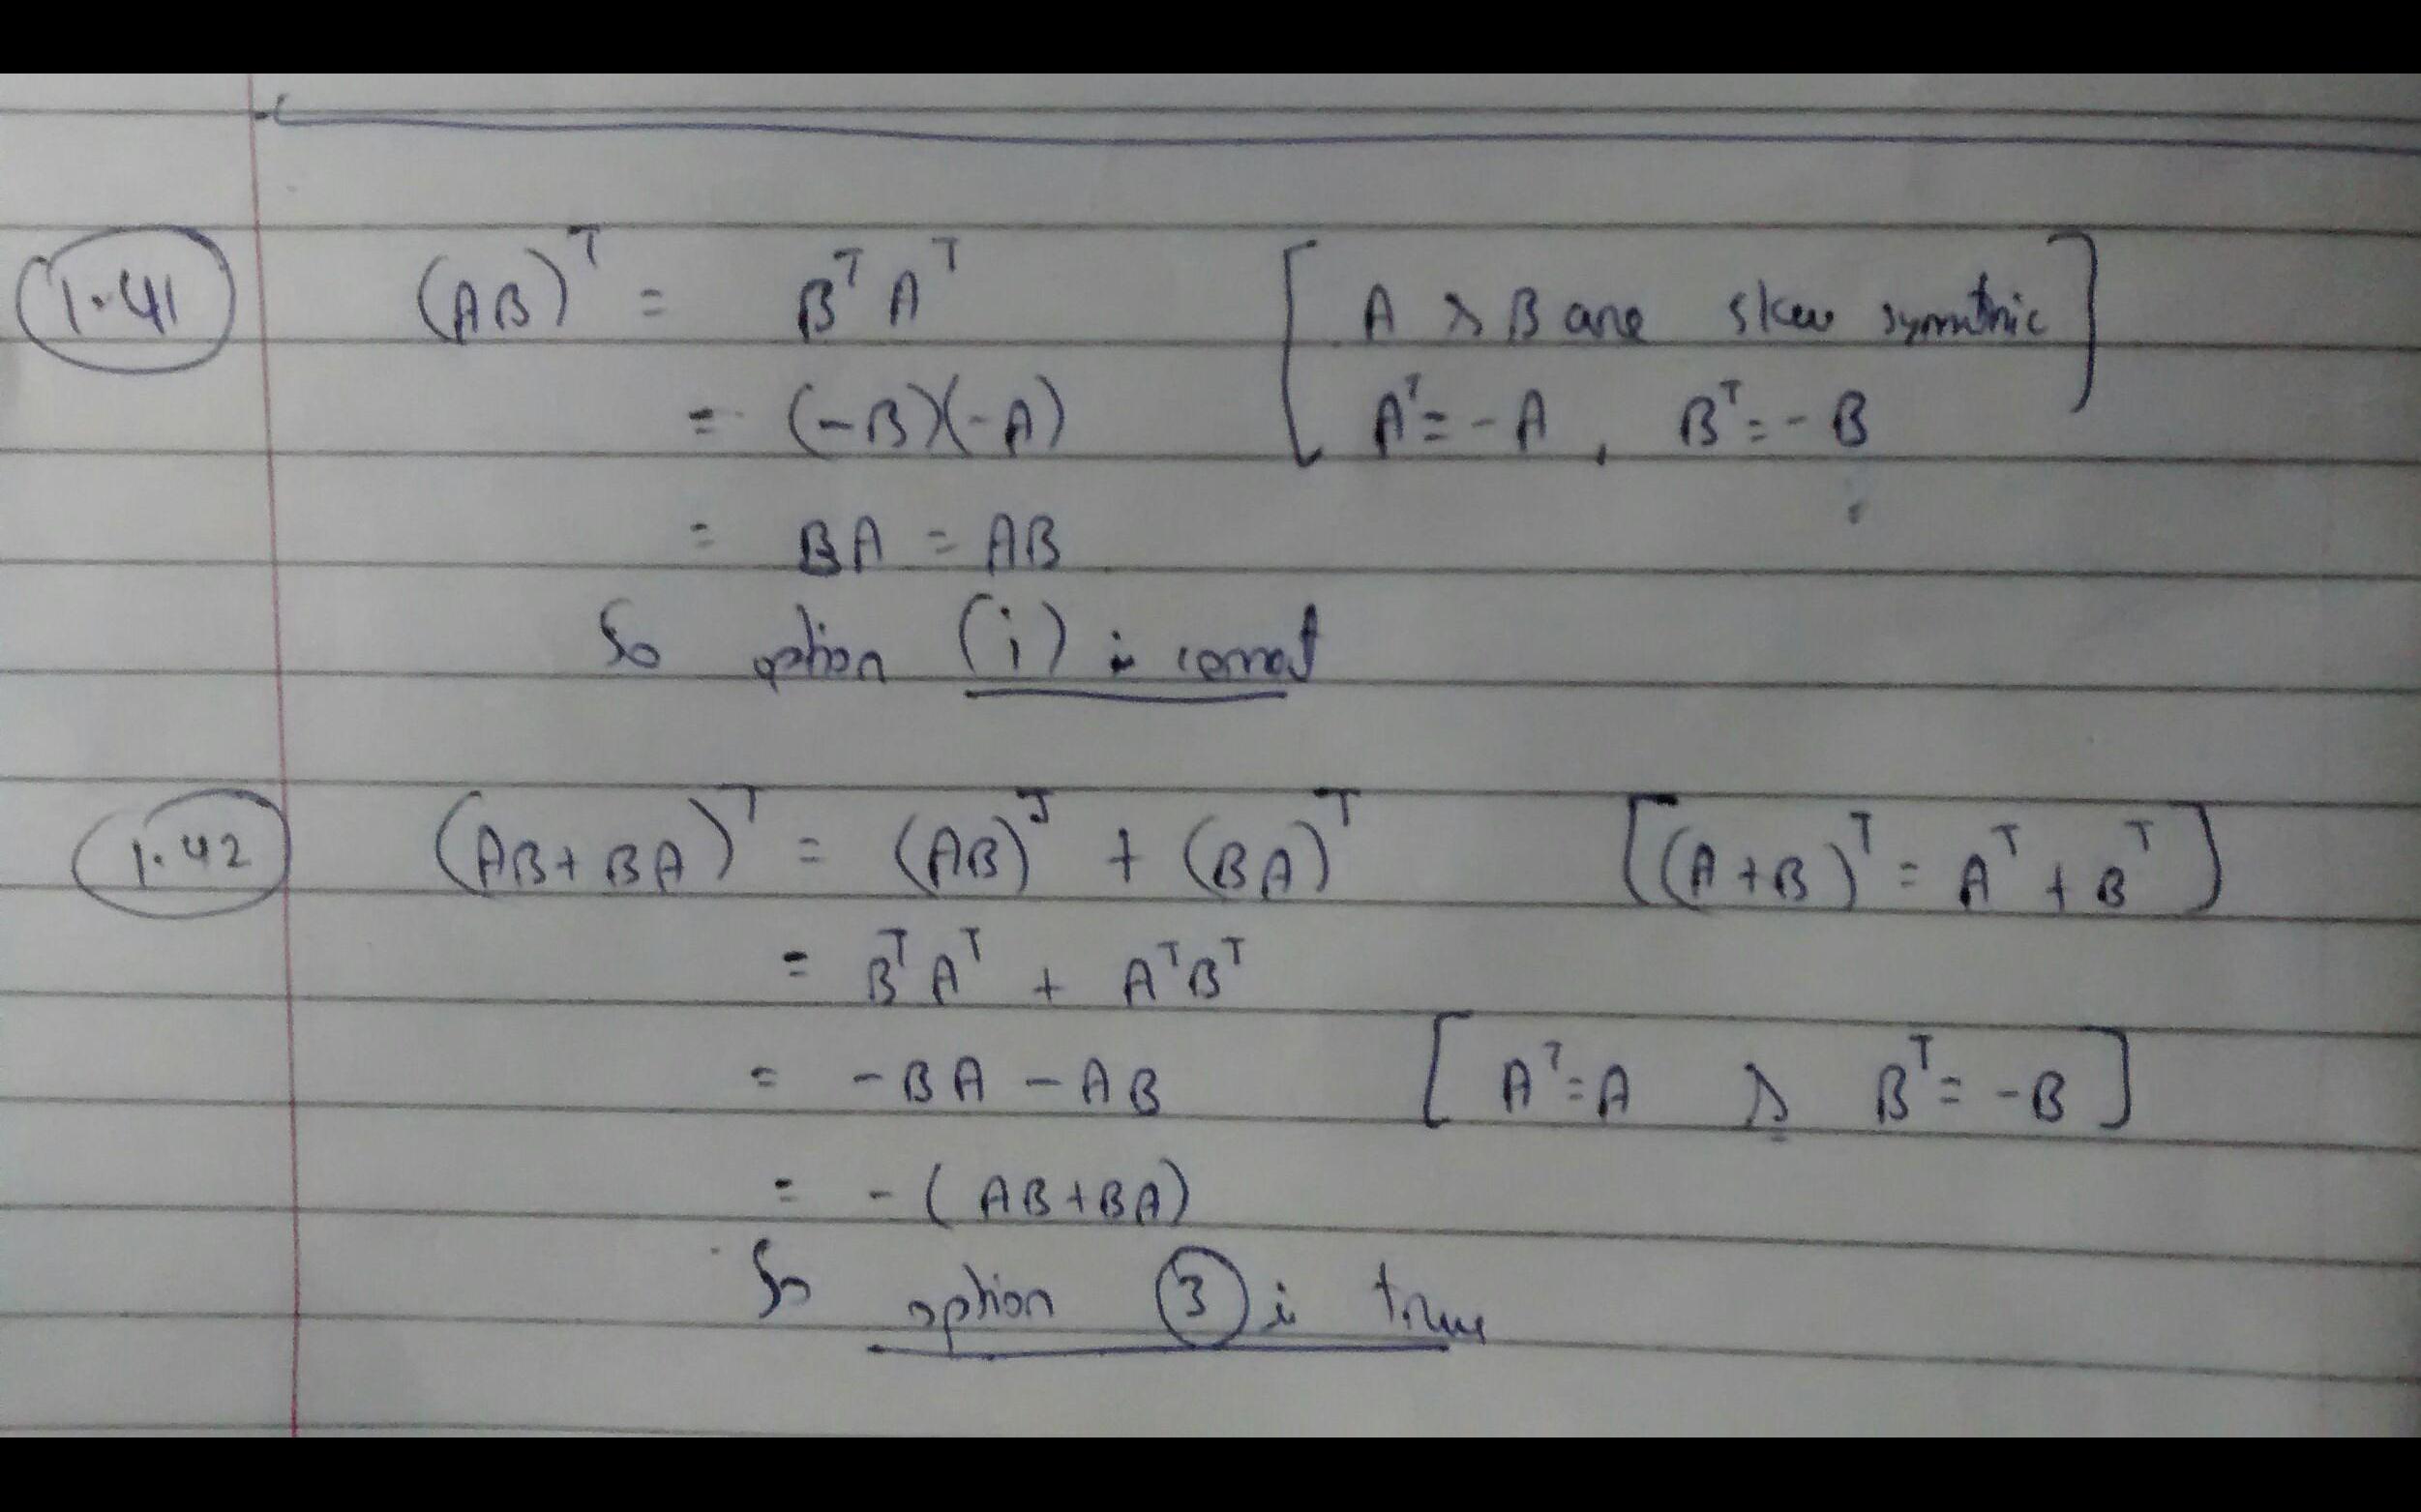 1.41 (AB)ᵀ = Bᵀ Aᵀ [A & B are skew symmtric
= (-B)(-A) Aᵀ = -A , Bᵀ = -B]
= BA = AB
So option (i) is correct
1.42 (AB+BA)ᵀ = (AB)ᵀ + (BA)ᵀ [(A+B)ᵀ = Aᵀ + Bᵀ]
= BᵀAᵀ + AᵀBᵀ
= -BA - AB [Aᵀ=A & Bᵀ = -B]
= -(AB+BA)
So option ③ is true